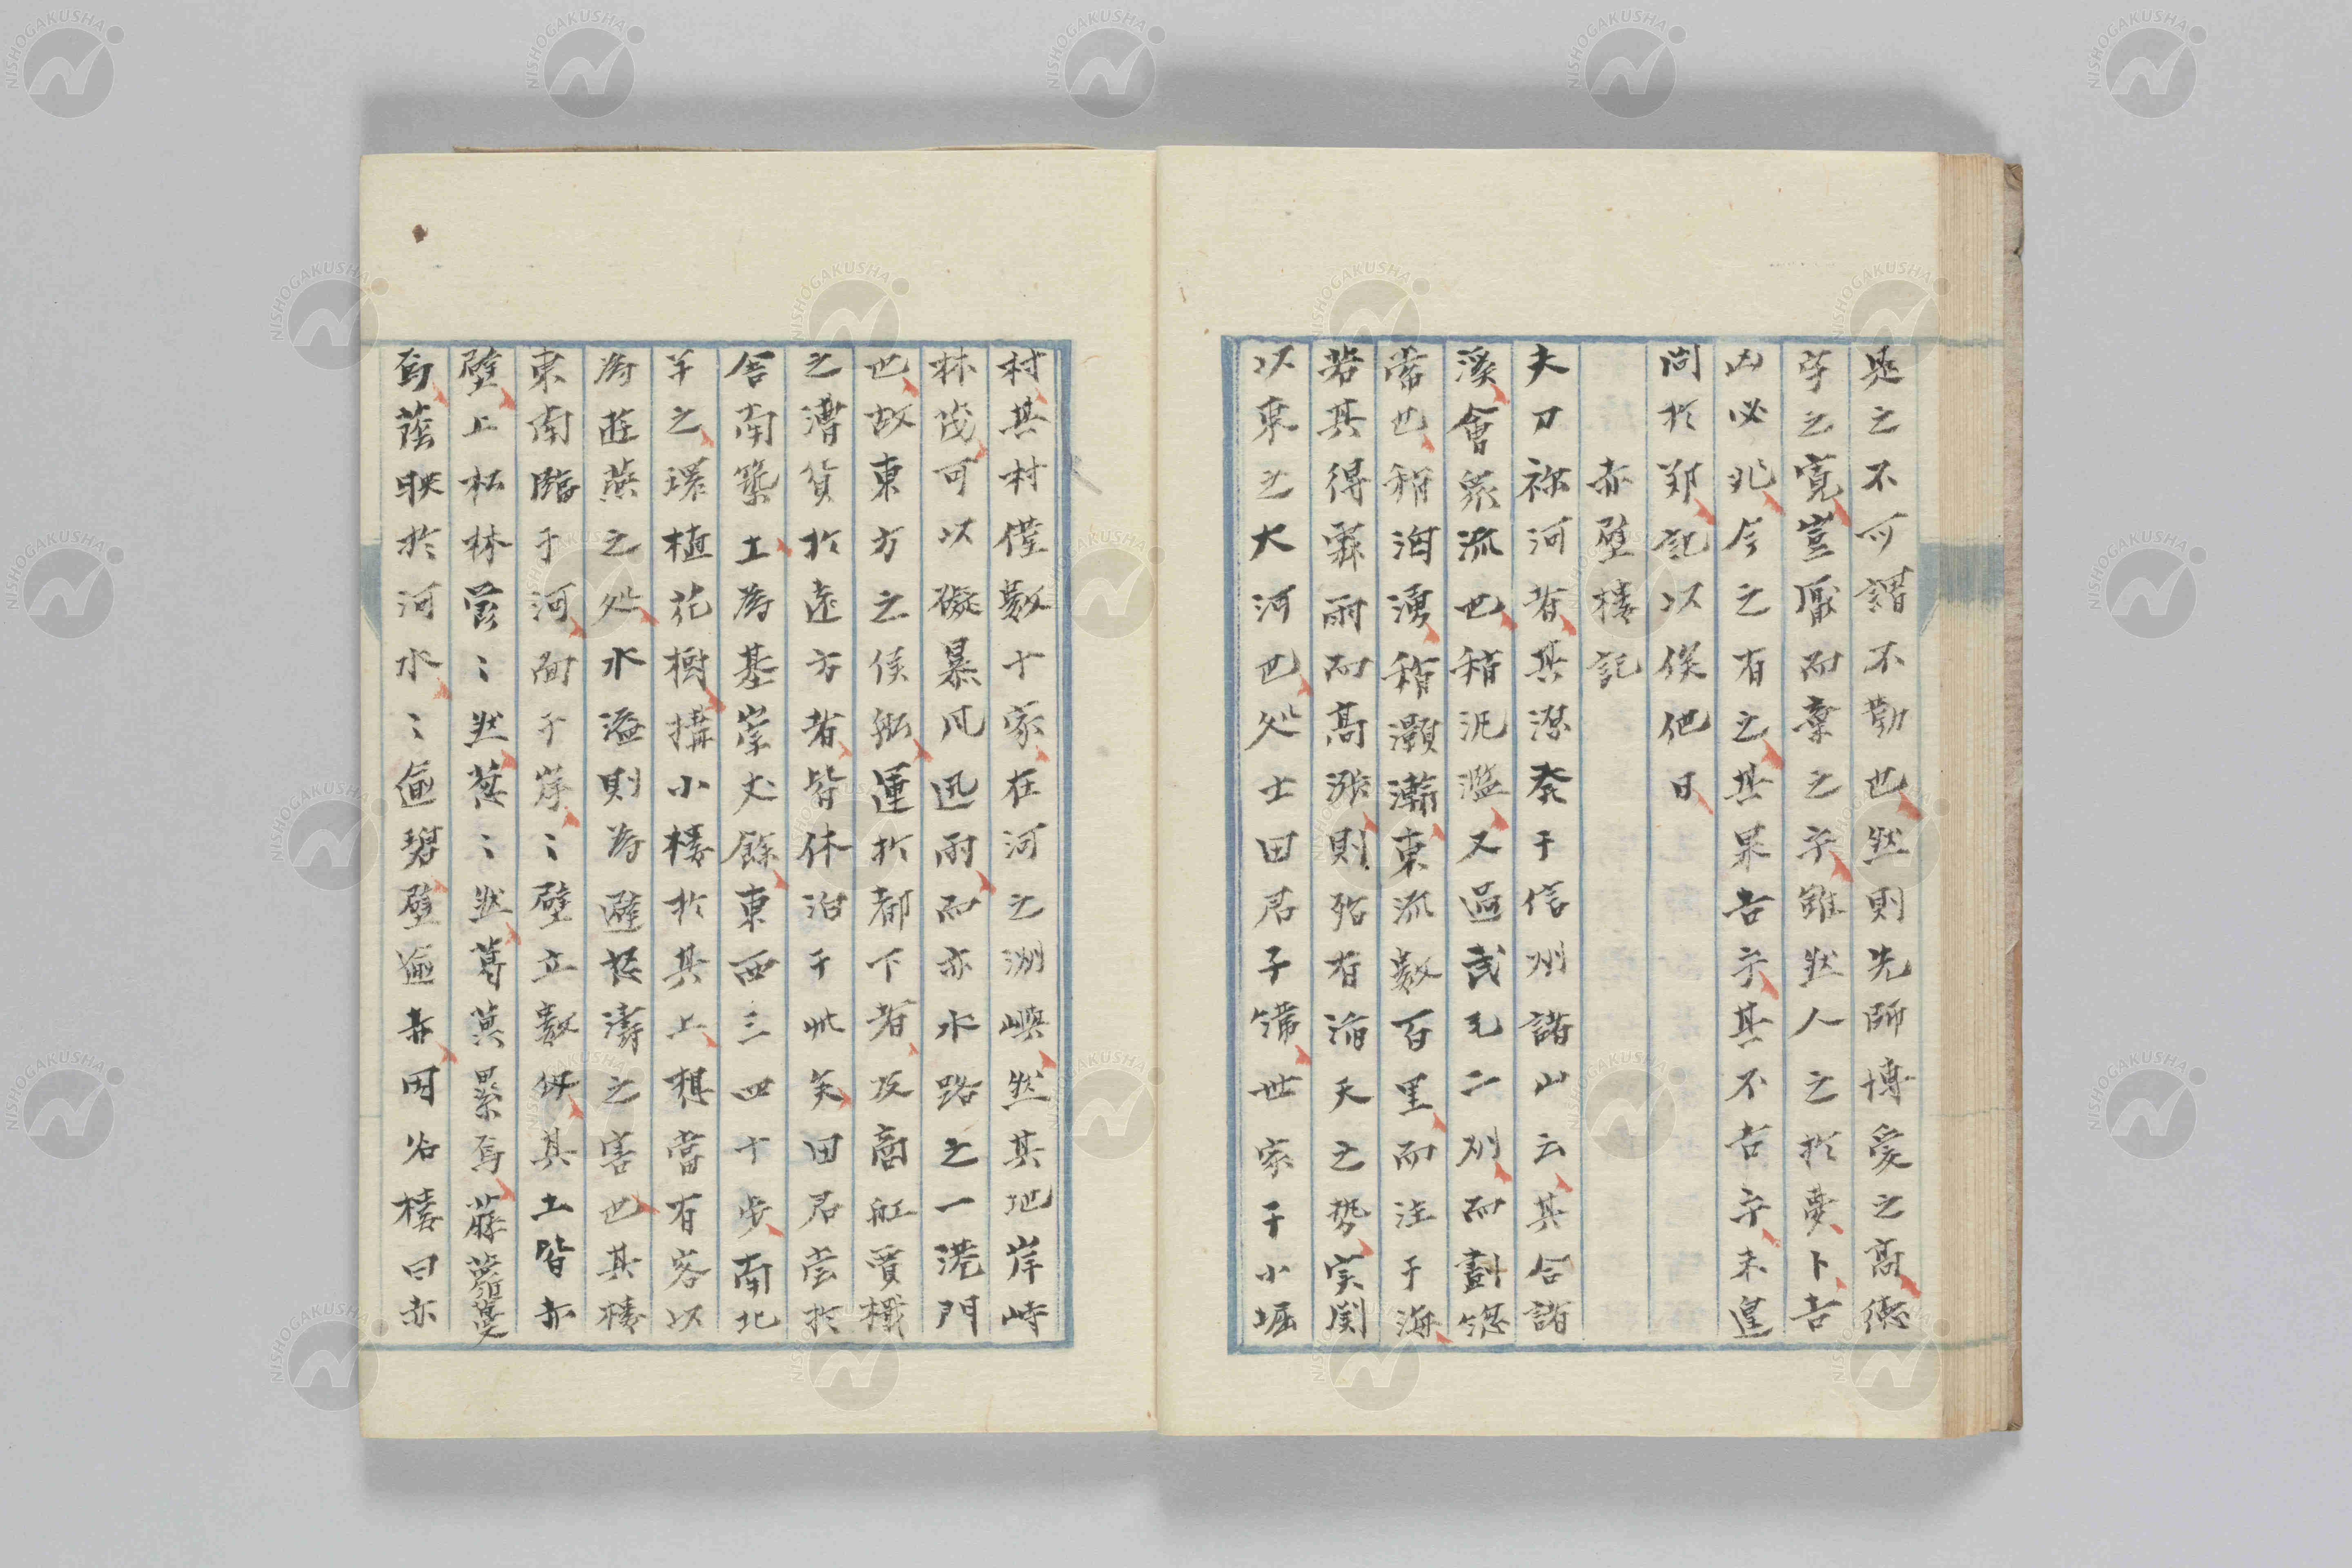 是之不可謂不勤也然則先師博愛之高德
守之寬豈厭而棄之乎雖然人之於夢卜吉
凶必兆今之有之其果吉乎其不吉乎未遑
問於鄰記以俟他日
赤壁樓記
夫刀祢河者其源發于信州諸山云其合諸
溪會衆流也稍汎濫又過武毛二州而劃總
常也稍洶湧稍灝瀚東流數百里而注于海
若其得霖雨而高漲則殆有滔天之勢実関
以東之大河也処士田君子備世家于小堀
村其村僅數十家在河之洲嶼然其地岸峙
林茂可以礙暴风迅雨而亦水路之一港門
也故東方之侯船運於都下者及商舡賈檝
之漕貨於遠方者皆休泊于此矣田君嘗於
舍南築土為基崇丈餘東西三四十步南北
半之環植花樹搆小樓於其上想當有客以
為遊燕之処水溢則為避怒濤之害也其樓
東南臨于河面于岸々壁立數仞其土皆赤
壁上松林鬱々然葱々然葛藟纍焉藤蘿蔓
焉蔭映於河水々逾碧壁逾赤因名樓曰赤
NISHOGAKUSHA